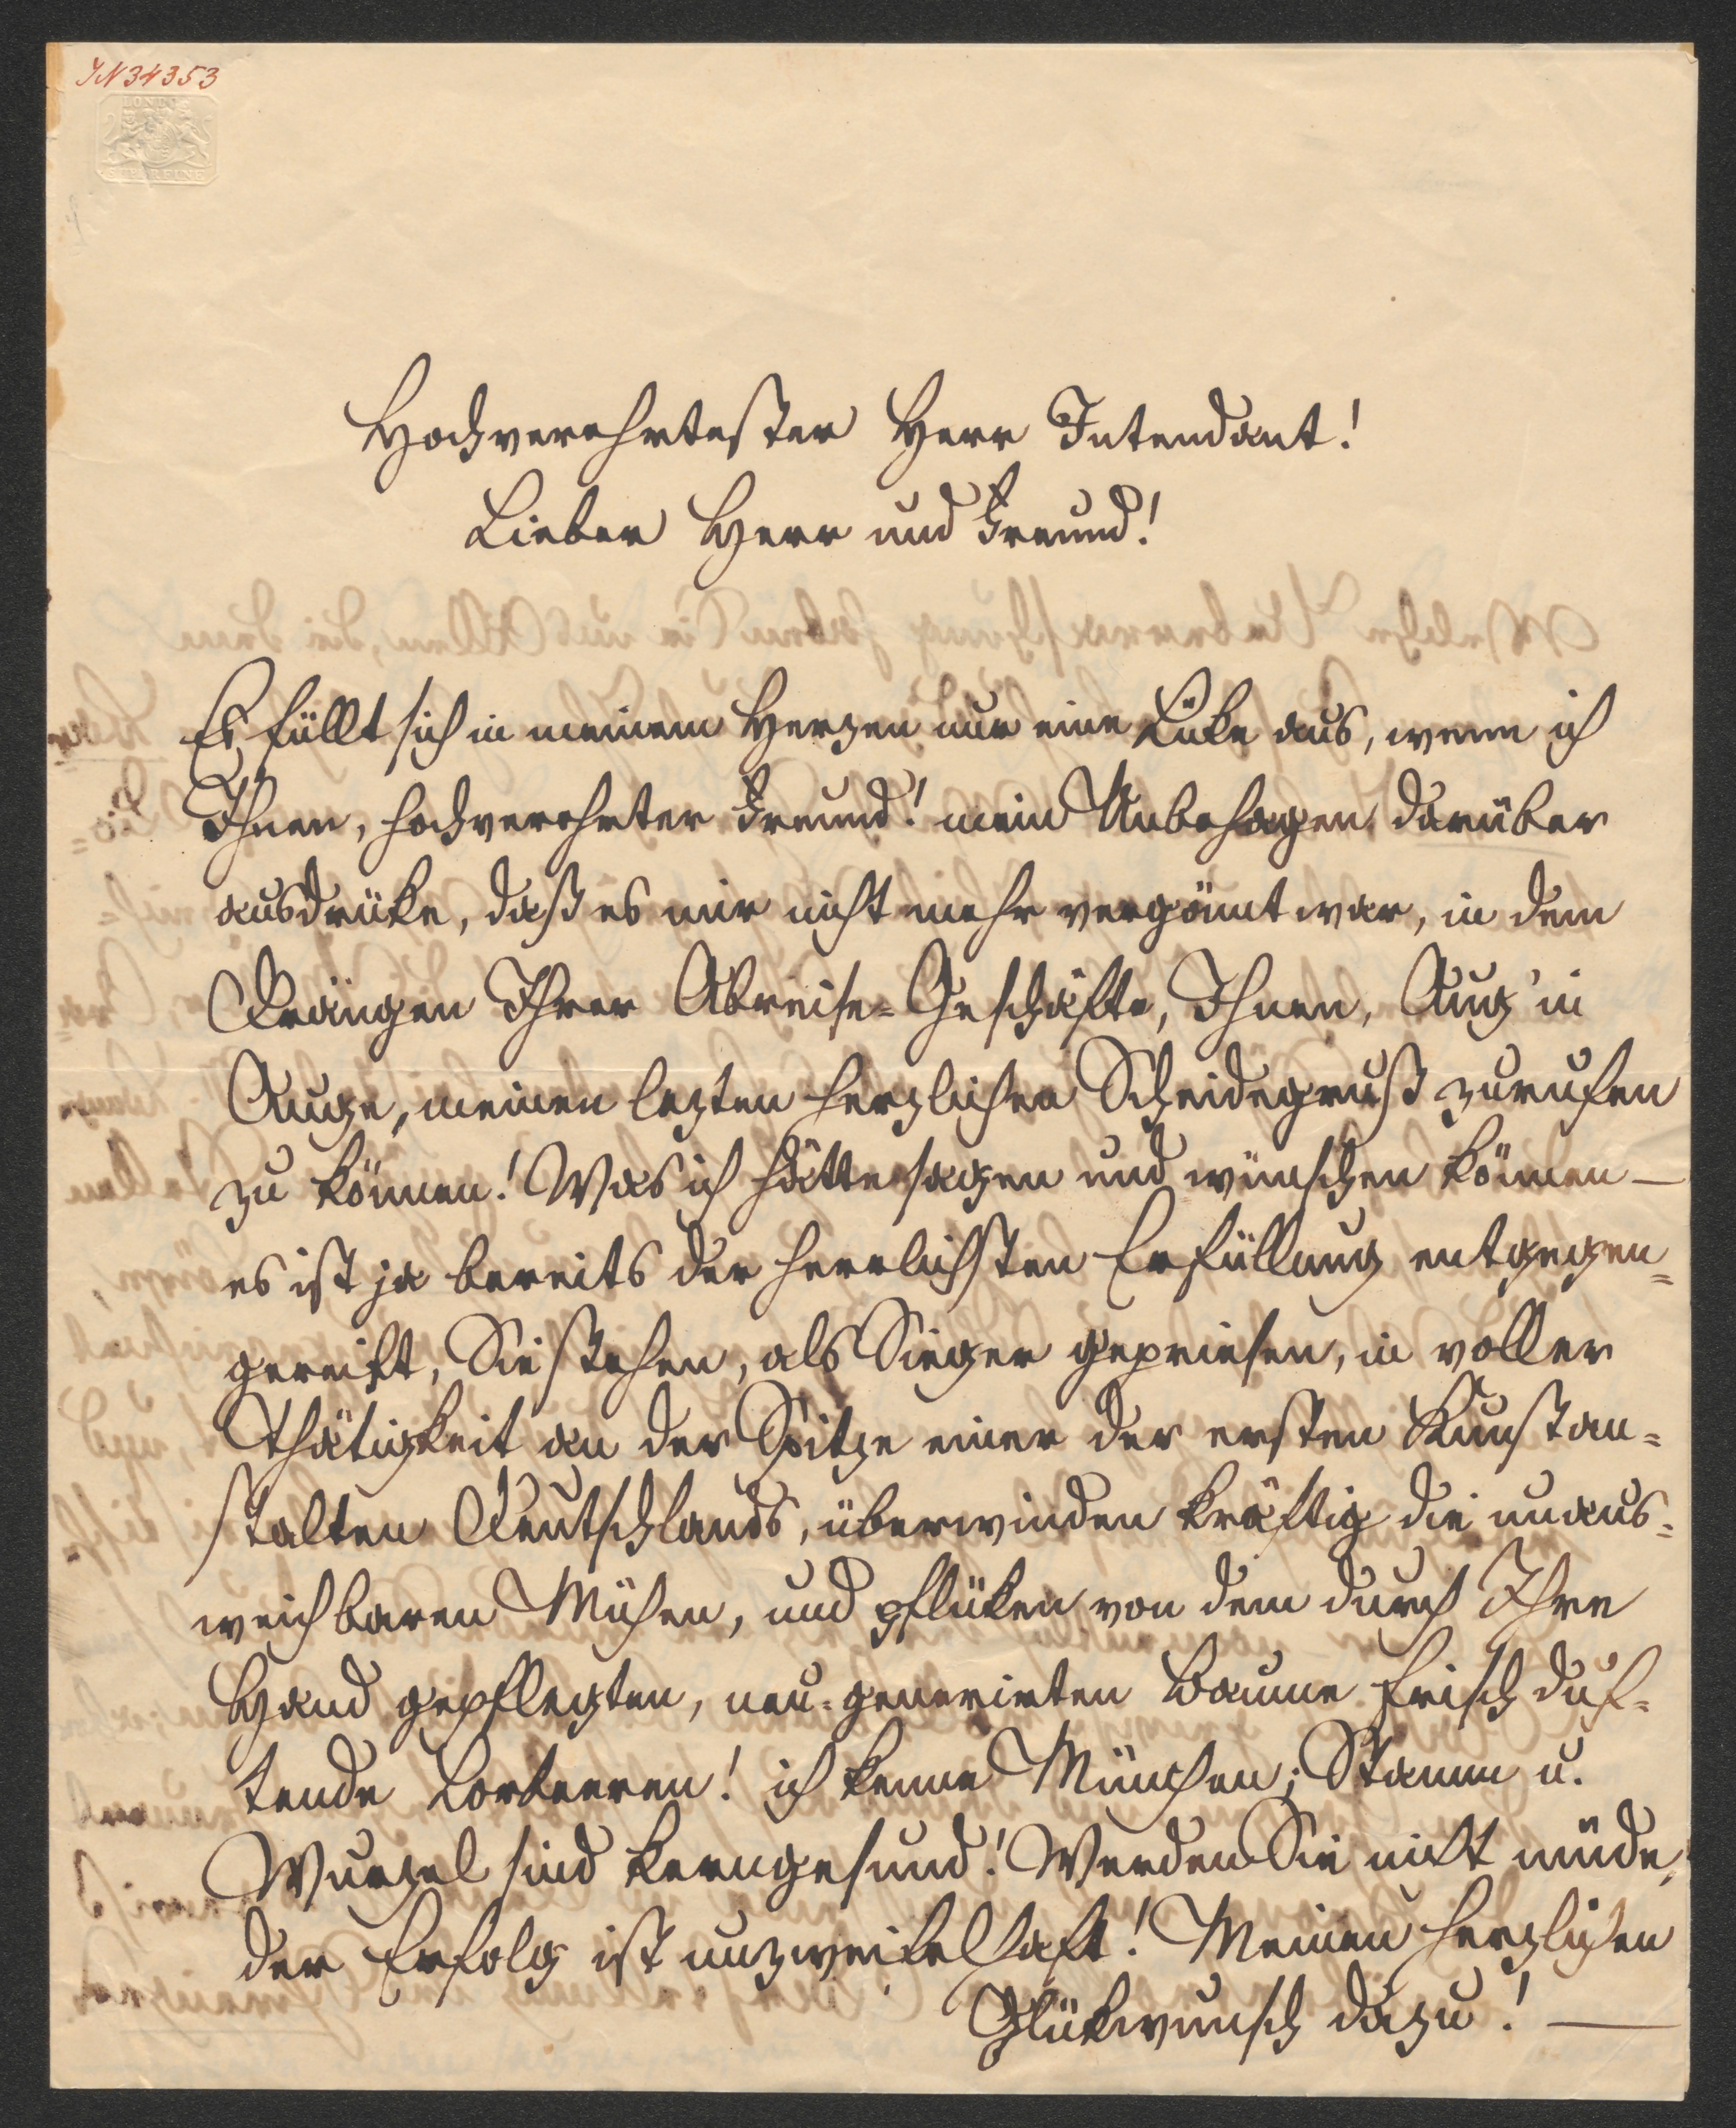 IN 34353
LONDON
SUPERFINE
Hochverehrtester Herr Intendant!
Lieber Herr und Freund!
Es füllt sich in meinem Herzen nur eine Lüke aus, wenn ich
Ihnen, hochverehrter Freund! mein Unbehagen darüber
ausdrüke, daß es mir nicht mehr vergönnt war, in dem
Drängen Ihrer Abreise=Geschäfte, Ihnen, Aug' in
Auge, meinen lezten herzlichen Scheidegruß zurufen
zu können! Was ich hätte sagen und wünschen können —
es ist ja bereits der herrlichsten Erfüllung entgegen=
gereift, Sie stehen, als Sieger gepriesen, in voller
Thätigkeit an der Spitze einer der ersten Kunstan=
stalten Deutschlands, überwinden kräftig die unaus=
weichbaren Mühen, und pflüken von dem durch Ihre
Hand gepflegten, neu=generirten Baume frisch duf=
tende Lorbeeren! ich kenne München; Stamm u.
Wurzel sind kerngesund! Werden Sie nicht müde,
der Erfolg ist unzweifelhaft! Meinen herzlichen
Glükwunsch dazu! —